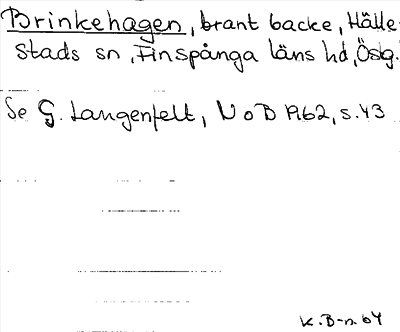 Brinkehagen, brant backe, Hälle-
stads sn, Finspånga läns hd, Ösg.
Se G. Langenfelt, NoB 1962, s. 43
K. B-n. 64